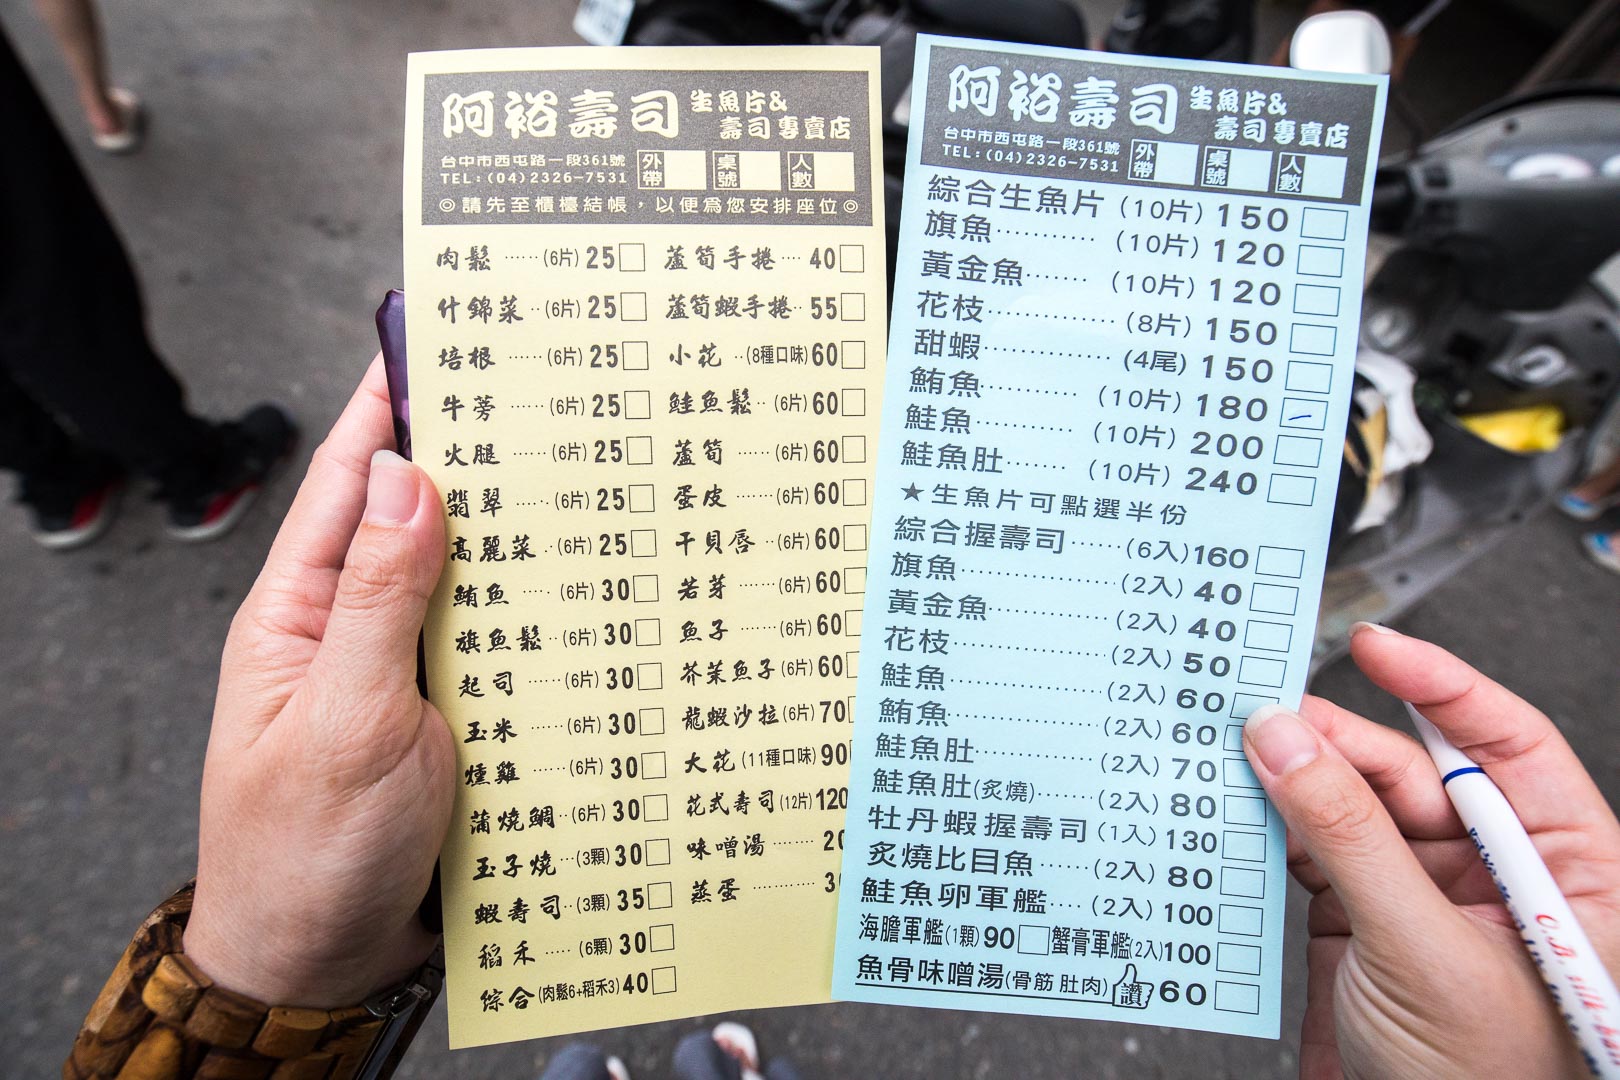 阿裕壽司 生魚片&
壽司專賣店
台中市西屯路一段361號
TEL:(04)2326-7531
外帶 桌號 人數
◎請先至櫃檯結帳，以便為您安排座位◎
肉鬆 ······(6片) 25
什錦菜 ··(6片) 25
培根 ······(6片) 25
牛蒡 ······(6片) 25
火腿 ······(6片) 25
翡翠 ······(6片) 25
高麗菜 ··(6片) 25
鮪魚 ····· (6片) 30
旗魚鬆 ··(6片) 30
起司 ······(6片) 30
玉米 ······(6片) 30
燻雞 ······(6片) 30
蒲燒鯛 ··(6片) 30
玉子燒 ···(3顆) 30
蝦壽司 ··(3顆) 35
稻禾 ····· (6顆) 30
綜合(肉鬆6+稻禾3) 40
蘆筍手捲 ···· 40
蘆筍蝦手捲 ·· 55
小花 ··(8種口味) 60
鮭魚鬆 ·· (6片) 60
蘆筍 ······(6片) 60
蛋皮 ·······(6片) 60
干貝唇 ··(6片) 60
若芽 ·······(6片) 60
魚子 ·······(6片) 60
芥茉魚子 (6片) 60
龍蝦沙拉(6片) 70
大花 (11種口味) 90
花式壽司 (12片) 120
味噌湯 ········ 20
蒸蛋 ··········· 3
阿裕壽司 生魚片&
壽司專賣店
台中市西屯路一段361號
TEL:(04)2326-7531
外帶 桌號 人數
綜合生魚片 (10片) 150
旗魚 ··········· (10片) 120
黃金魚 ······· (10片) 120
花枝 ·············· (8片) 150
甜蝦 ·············· (4尾) 150
鮪魚 ············ (10片) 180
鮭魚 ············ (10片) 200
鮭魚肚 ······· (10片) 240
★生魚片可點選半份
綜合握壽司 ······(6入) 160
旗魚 ·················· (2入) 40
黃金魚 ·············· (2入) 40
花枝 ·················· (2入) 50
鮭魚 ·················· (2入) 60
鮪魚 ·················· (2入) 60
鮭魚肚 ·············· (2入) 70
鮭魚肚(炙燒) ······· (2入) 80
牡丹蝦握壽司 (1入) 130
炙燒比目魚 ····· (2入) 80
鮭魚卵軍艦 ···· (2入) 100
海膽軍艦(1顆) 90 蟹膏軍艦(2入) 100
魚骨味噌湯(骨筋 肚肉) 讚 60